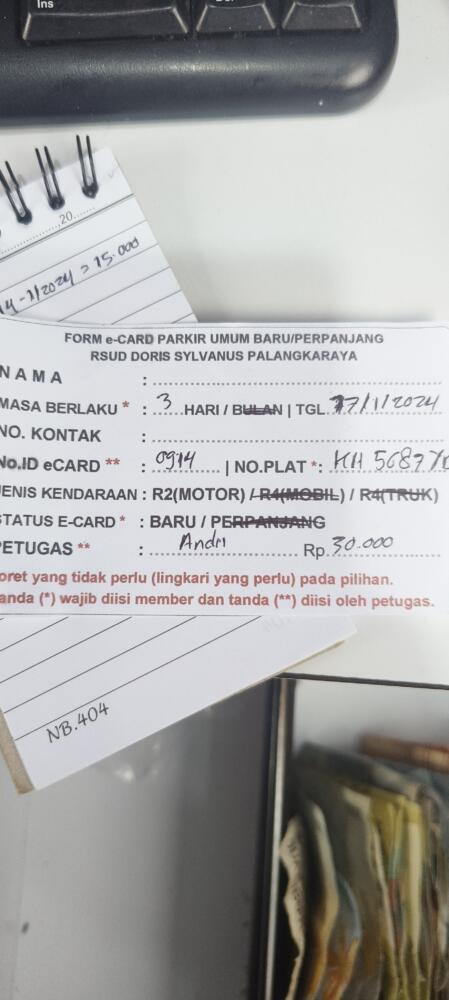 Ins
,20
1/2024 = 15.000
FORM e-CARD PARKIR UMUM BARU/PERPANJANG
RSUD DORIS SYLVANUS PALANGKARAYA
NAMA :
MASA BERLAKU * : 3 HARI / BULAN | TGL 17/1/2024
NO. KONTAK :
No.ID eCARD ** : 0914 | NO.PLAT *: KH 5687 Y
JENIS KENDARAAN : R2(MOTOR) / R4(MOBIL) / R4(TRUK)
STATUS E-CARD * : BARU / PERPANJANG
PETUGAS ** : Andri Rp. 30.000
oret yang tidak perlu (lingkari yang perlu) pada pilihan.
anda (*) wajib diisi member dan tanda (**) diisi oleh petugas.
NB.404